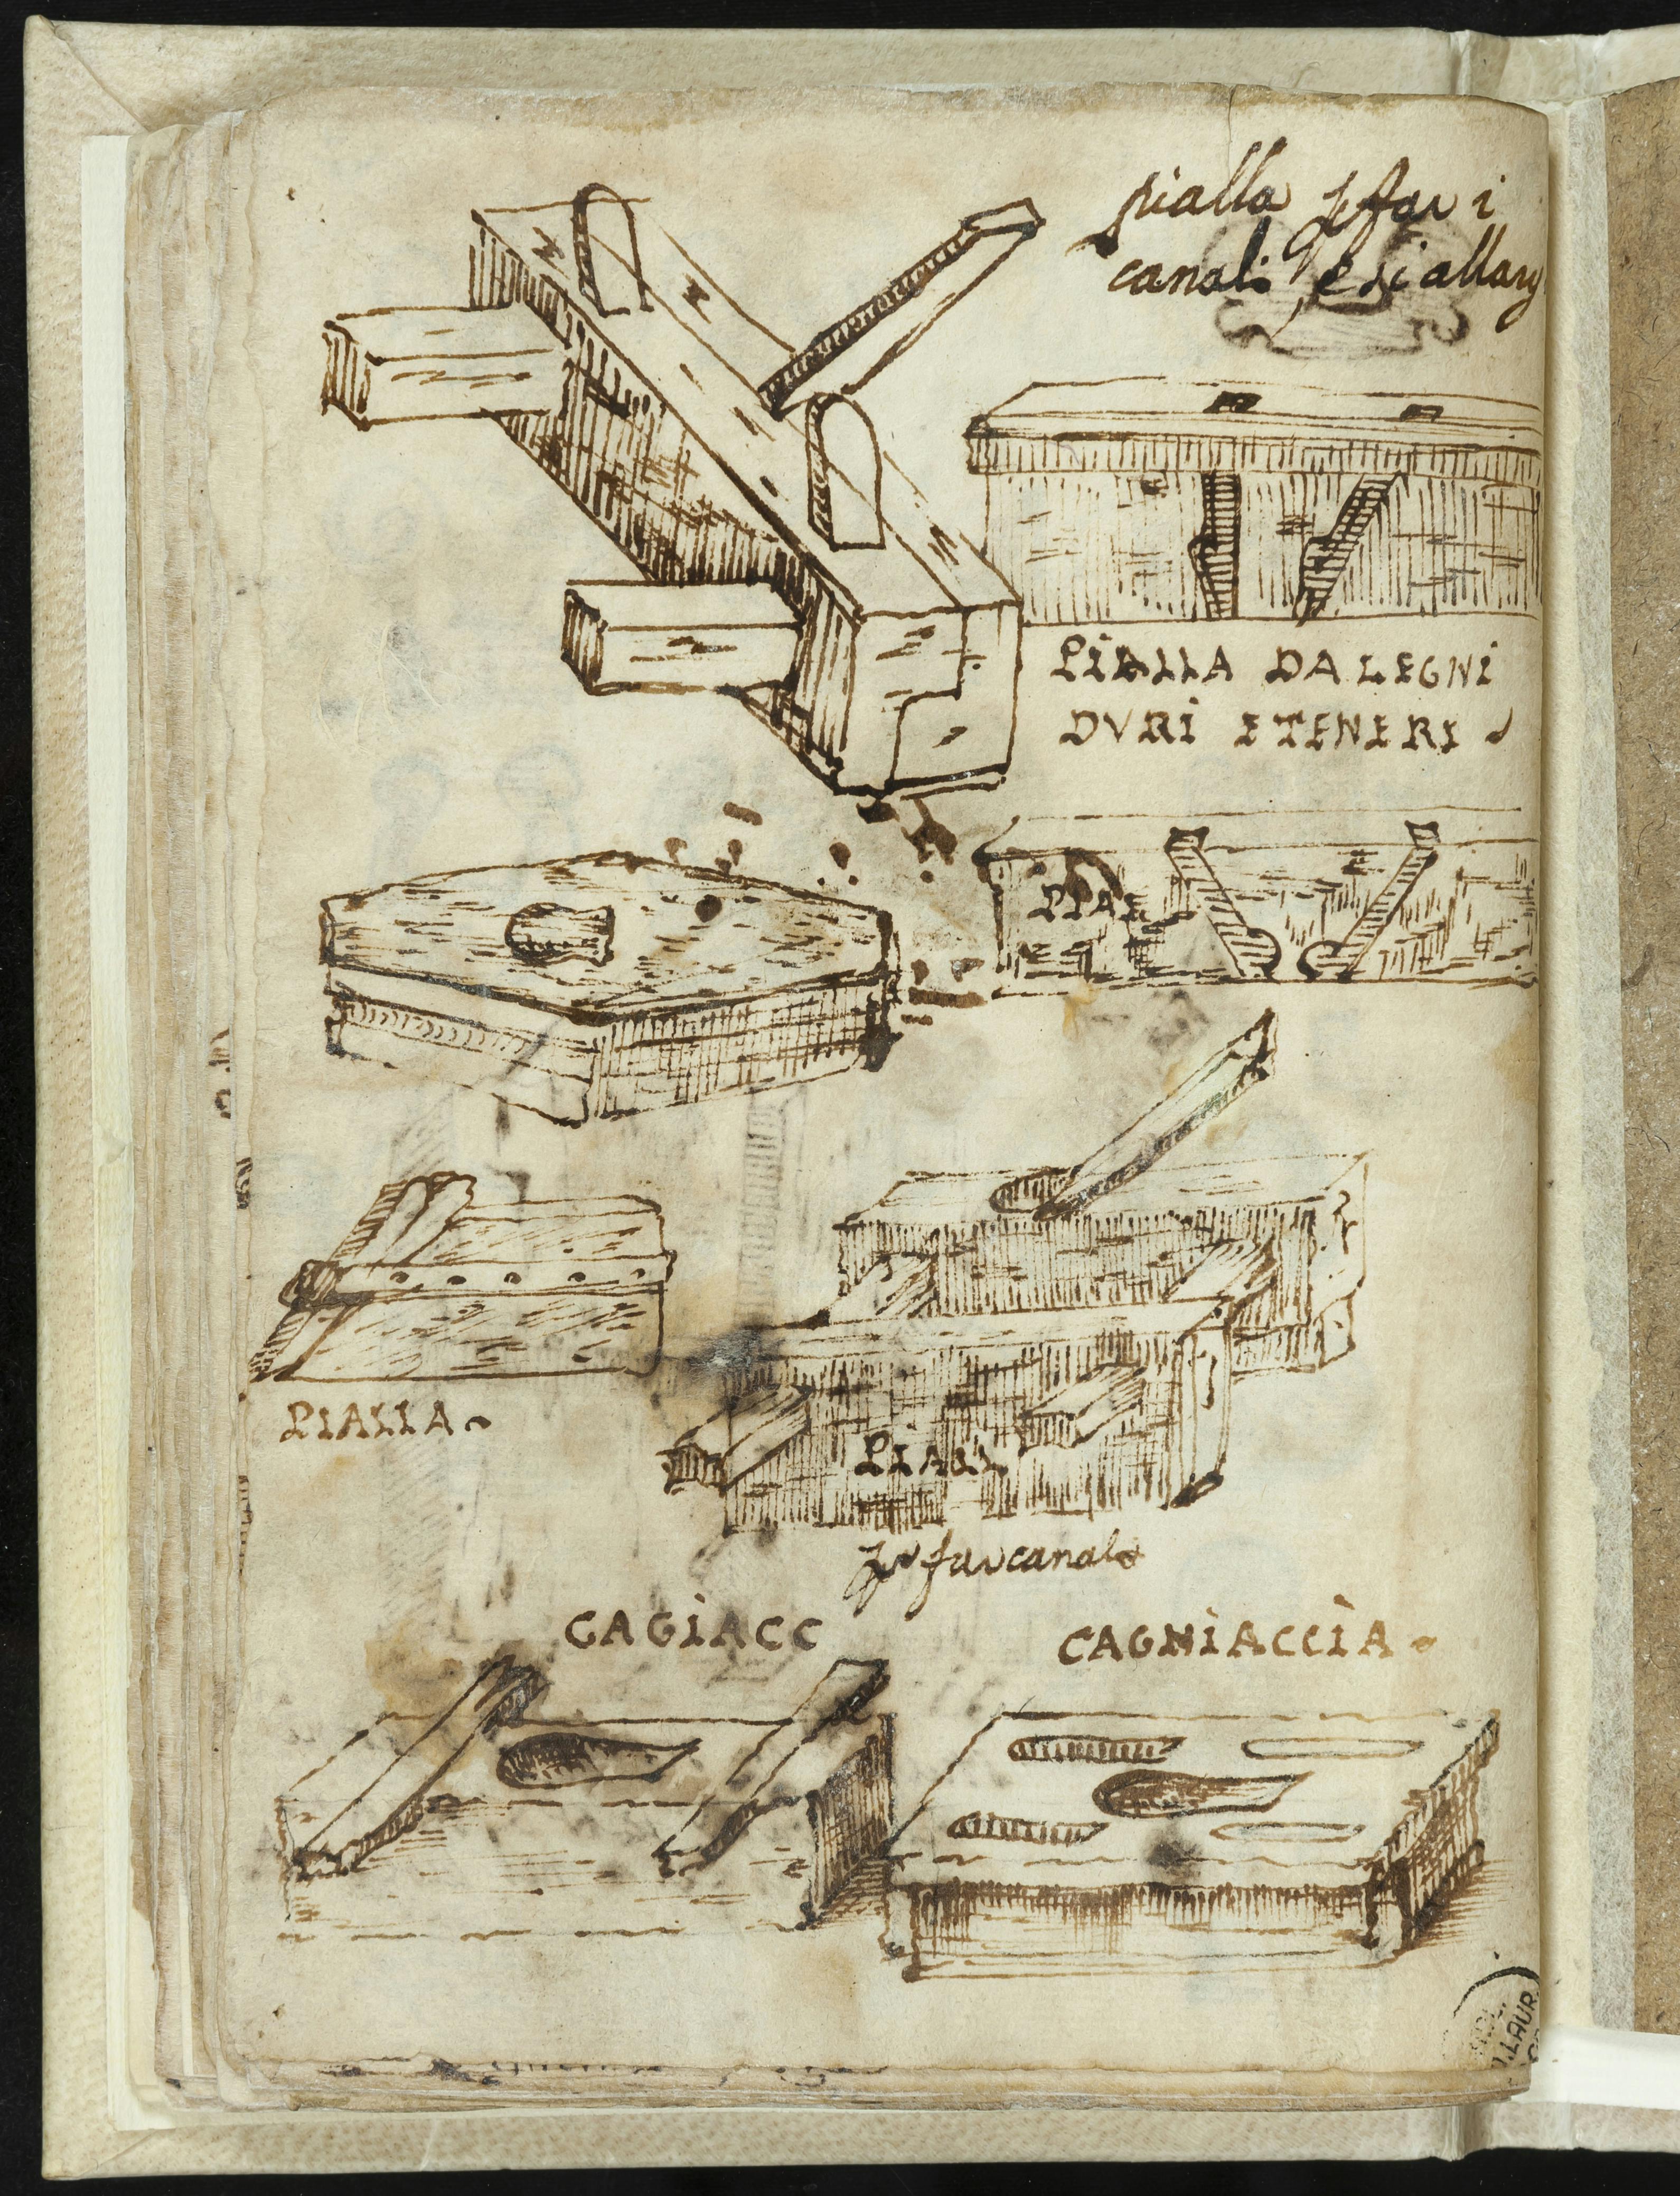 pialla p far i
canali e si allarg
PIALLA DA LEGNI
DVRI E TENERI
PIAL
PIALLA
PIALL
p far canale
CAGIACC
CAGNIACCIA
LAUR